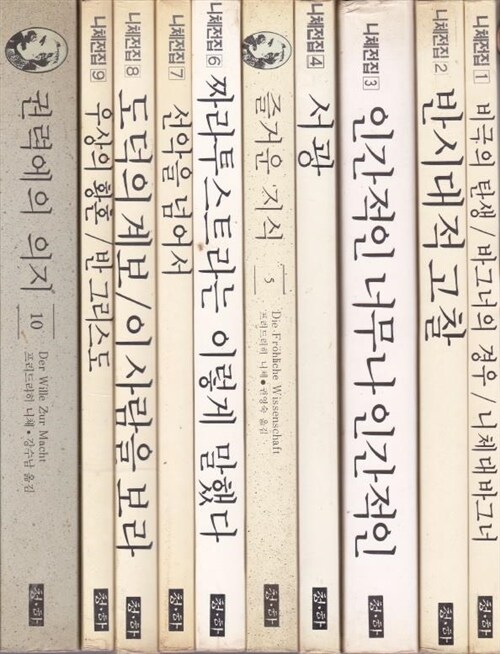 권력에의 의지
10
Der Wille Zur Macht
프리드리히 니체 • 강수남 옮김
청·하
니체전집 9
우상의 황혼 / 반그리스도
청·하
니체전집 8
도덕의 계보 / 이 사람을 보라
청·하
니체전집 7
선악을 넘어서
청·하
니체전집 6
짜라투스트라는 이렇게 말했다
청·하
즐거운 지식
5
Die Fröhliche Wissenschaft
프리드리히 니체 • 권영숙 옮김
청·하
니체전집 4
서광
청·하
니체전집 3
인간적인 너무나 인간적인
청·하
니체전집 2
반시대적 고찰
청·하
니체전집 1
비극의 탄생 / 바그너의 경우 / 니체 대 바그너
청·하